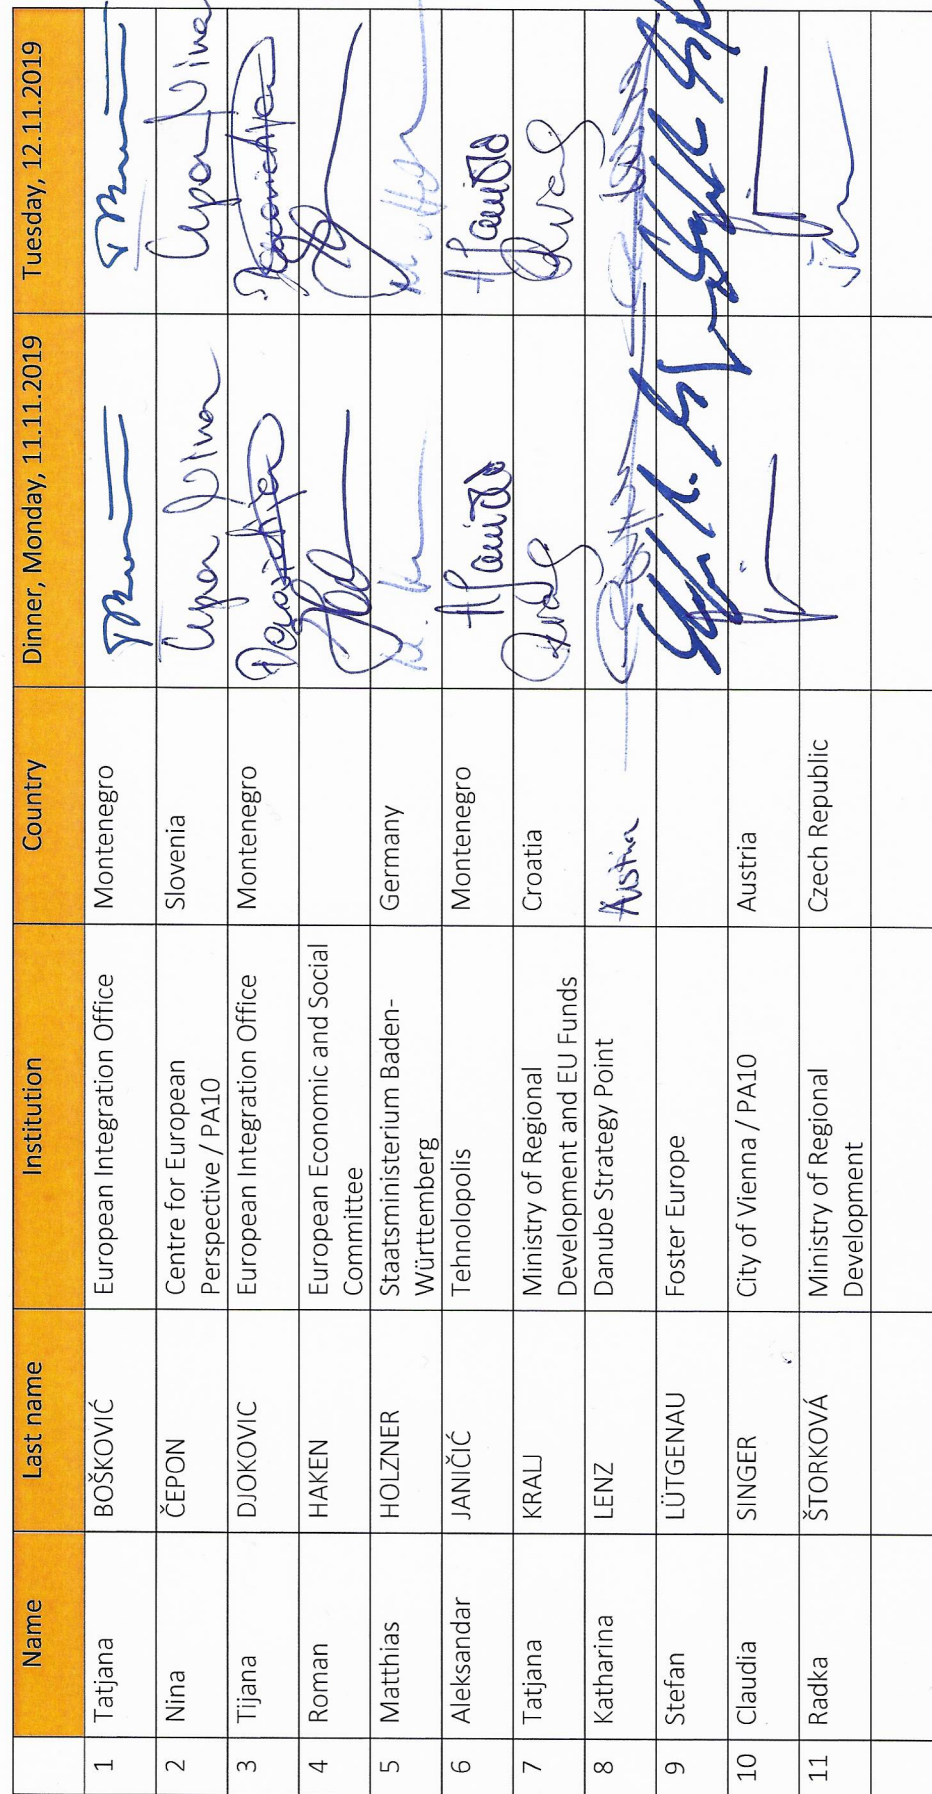 Name Last name Institution Country Dinner, Monday, 11.11.2019 Tuesday, 12.11.2019
1 Tatjana BOŠKOVIĆ European Integration Office Montenegro
2 Nina ČEPON Centre for European Slovenia
Perspective / PA10
3 Tijana DJOKOVIC European Integration Office Montenegro
4 Roman HAKEN European Economic and Social
Committee
5 Matthias HOLZNER Staatsministerium Baden- Germany
Württemberg
6 Aleksandar JANIČIĆ Tehnolopolis Montenegro
7 Tatjana KRALJ Ministry of Regional Croatia
Development and EU Funds
8 Katharina LENZ Danube Strategy Point Austria
9 Stefan LÜTGENAU Foster Europe
10 Claudia SINGER City of Vienna / PA10 Austria
11 Radka ŠTORKOVÁ Ministry of Regional Czech Republic
Development